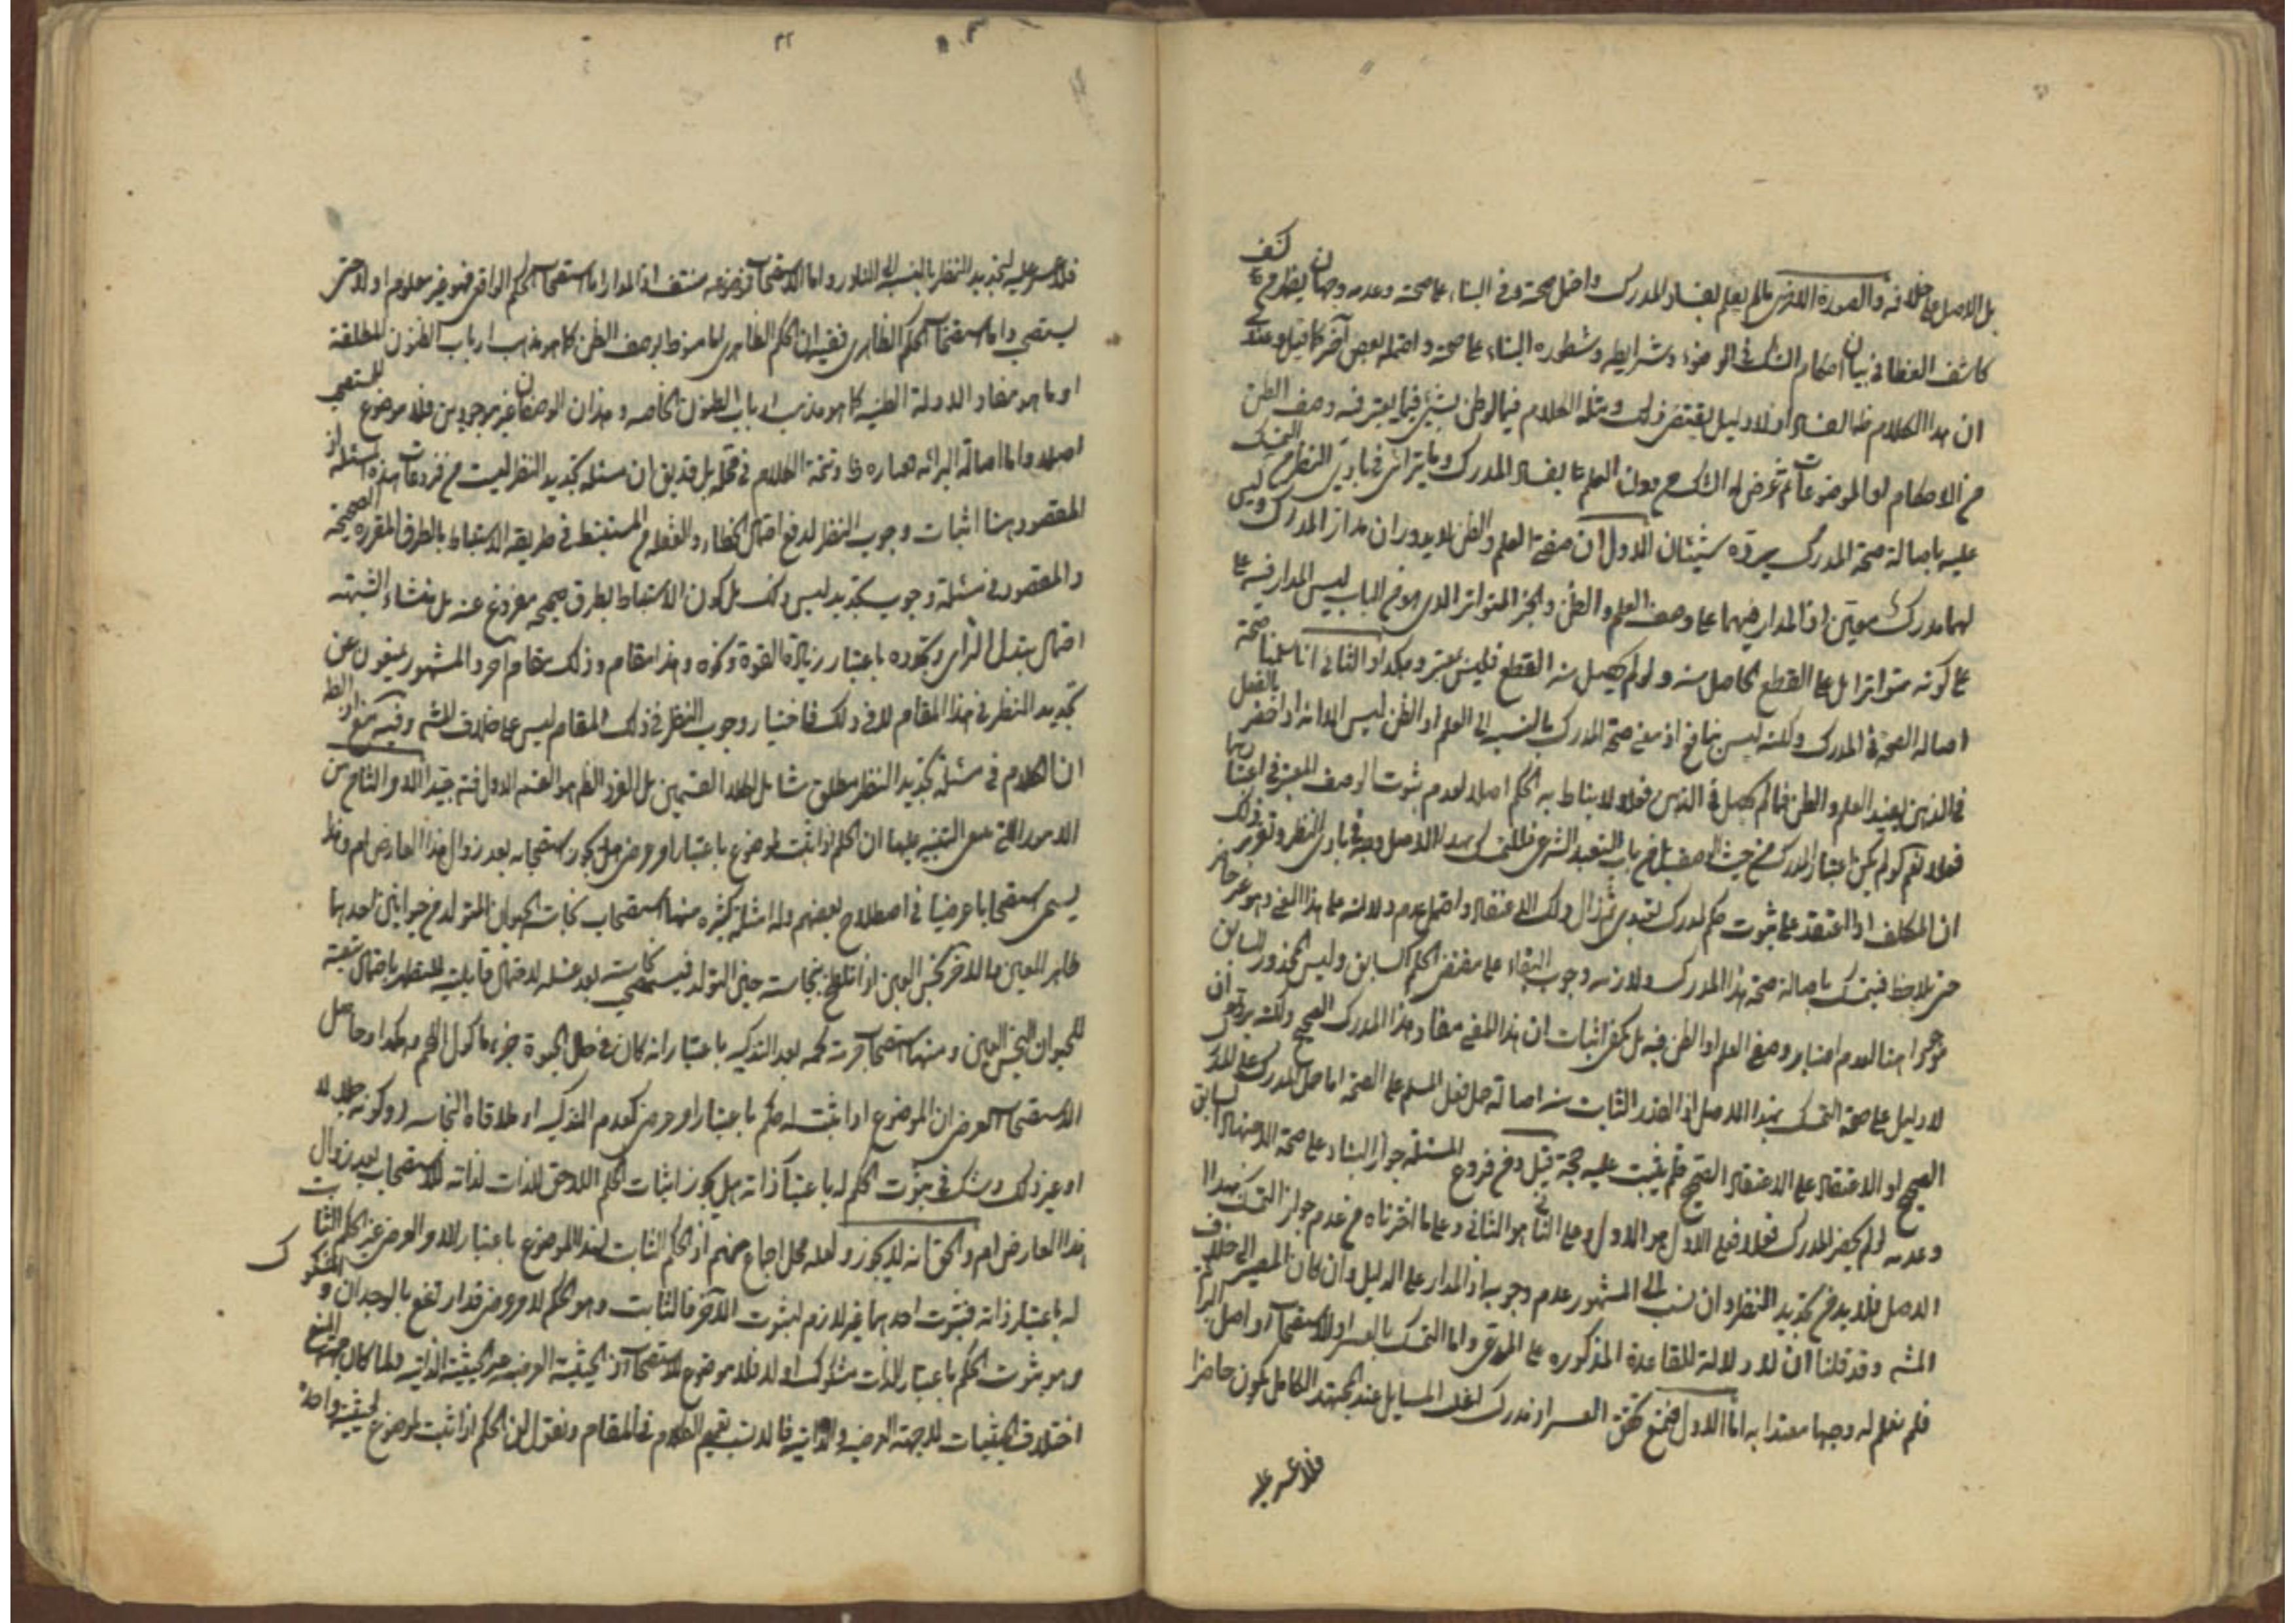 بل الاصل على خلافه والصورة الاخرى ما لم يعلم بفساد المدرك واحتمل صحته وفى البناء على صحته وعدمه وجهان يظهر من كشف
كاشف الغطا فى بيان احكام الشك فى الوضوء وشرايطه وشطوره البناء على صحته واحتمله بعض آخر كما قيل وعندى
ان هذا الكلام ظاهر الفساد اذ لا دليل يقتضى ذلك ومثله الكلام فيما لو ظن بشئ فيما يعتبر فيه وصف الظن
من الاحكام او الموضوعات ثم عرض له الشك من دون العلم بفساد المدرك وما يترائى فى بادى النظر من التمسك
عليه باصالة صحة المدرك يرده شيئان الاول ان صفة العلم والظن لا يدوران مدار المدرك وليس
لهما مدرك معين اذ المدار فيهما على وصف العلم والظن والخبر المتواتر الذى هو من الباب ليس المدار فيه على
على كونه متواترا بل على القطع الحاصل منه ولو لم يحصل منه القطع فليس بمعتبر وهكذا والثانى انا سلمنا صحة
اصالة الصحة فى المدرك ولكنه ليس بنافع اذ معنى صحة المدرك بالنسبة الى العلم او الظن ليس الا انه اذا حضر بالفعل
فى الذهن يفيد العلم والظن فما لم يحصل فى الذهن فعلا لا يناط به الحكم اصلا لعدم ثبوت الوصف المعتبر فى اعتبارهما
فعلا نعم لو لم يكن اعتبار المدرك من حيث الوصف بل من باب التعبد الشرعى فللتمسك بهذا الاصل وجه فى بادى النظر وتقرير ذلك
ان المكلف اذا اعتقد على ثبوت حكم لمدرك تعبدى ثم زال ذلك الاعتقاد واحتمل عدم دلالته على هذا المعنى وهو غير حاضر
حتى يلاحظ فيتمسك باصالة صحة هذا المدرك ولازمه وجوب البقاء على مقتضى الحكم السابق وليس المحذور السابق
موجودا هنا لعدم اعتبار وصفى العلم او الظن فيه بل يكفى اثبات ان هذا المعنى مفاد هذا المدرك الصحيح ولكنه يرد على ان
لا دليل على صحة التمسك بهذا الاصل اذ القدر الثابت منه اصالة حمل فعل المسلم على الصحة اما حمل المدرك على المدرك
الصحيح او الاعتقاد على الاعتقاد الصحيح فلم يثبت عليه حجة قيل ومن فروع المسئلة جواز البناء على صحة الاجتهاد السابق
وعدمه لو لم يحضر المدرك فعلا فعلى الاول هو الاول وعلى الثانى هو الثانى وعلى ما اخترناه من عدم جواز التمسك بهذا
الاصل فلا بد من تجديد النظر وان نسب الى المشهور عدم وجوبه اذ المدار على الدليل وان كان المصير الى خلاف
المشهور وقد قلنا ان لا دلالة للقاعدة المذكورة على المدعى واما التمسك بالعسر او الاستصحاب او اصل البرائة
فلم نعلم له وجها معتدا به اما الاول فممنع تحقق العسر اذ مدرك اغلب المسايل عند المجتهد الكامل يكون حاضرا
فلا عسر عليه
فلا عسر عليه لتجديد النظر بالنسبة الى النادر واما الاستصحاب فموضوعه منتف اذ المدار اما استصحاب الحكم الواقعى فهو غير معلوم اولا حتى
يستصحب واما استصحاب الحكم الظاهرى ففيه ان الحكم الظاهرى اما منوط بوصف الظن كما هو مذهب ارباب الظنون المطلقة
او ما هو مفاد الادلة الظنية كما هو مذهب ارباب الظنون الخاصه وهذان الوصفان غير موجودين فلا موضوع للمستصحب
اصلا واما اصالة البرائة فساده ظ وتتمة الكلام فى محله بل قد يق ان مسئلة تجديد النظر ليست من فروعات هذه المسئلة اذ
المقصود هنا اثبات وجوب النظر لدفع احتمال الخطاء والغفلة من المستنبط فى طريقه الاستنباط بالطرق المقررة الصحيحة
والمقصود فى مسئلة وجوب تجديد ليس ذلك بل كون الاستنباط بطرق صحيحه مفروغ عنه بل منشاء الشبهة
احتمال تبدل الراى وتجدده باعتبار زيادة القوة ونحوه وهذا مقام وذلك مقام اخر والمشهور ينفون عن
تجديد النظر فى هذا المقام لا فى ذلك فاختيار وجوب النظر فى ذلك المقام ليس على خلاف المشهور وفيه منع اذ الظ
ان الكلام فى مسئلة تجديد النظر مطلق شامل لكلا القسمين بل الفرد الظاهر هو القسم الاول فتنبه جيدا الامر الثامن من
الامور التى ينبغى التنبيه عليها ان الحكم اذا ثبت لموضوع باعتبار امر عرضى هل يجوز استصحابه بعد زوال هذا العارض ام لا وقد
يسمى استصحابا عرضيا فى اصطلاح بعضهم وله امثلة كثيره منها استصحاب نجاسة الحيوان المتولد من حيوانين احدهما
طاهر العين والاخر نجس العين اذا تلطخ بنجاسة حين التولد فيستصحب نجاسته بعد غسله لاحتمال قابليته للتطهر باحتمال تبعيته
للحيوان النجس العين ومنها استصحاب حرمة لحمه بعد التذكية باعتبار انه كان فى حال الحيوة جزء ماكول اللحم وهكذا وحاصل
الاستصحاب العرضى ان الموضوع اذا ثبت له حكم باعتبار امر عرضى كعدم التذكية او ملاقاة النجاسه او كونه جلالا
او غير ذلك وشك فى ثبوت الحكم له باعتبار ذاته هل يجوز اثبات الحكم اللاحق للذات لذاته للاستصحاب بعد زوال
هذا العارض ام لا والحق انه لا يجوز ولعله محل اجماع منهم اذ الحكم الثابت لهذا الموضوع باعتبار الامر العرضى غير الحكم الثابت
له باعتبار ذاته فثبوت احدهما غير لازم لثبوت الآخر فالثابت وهو الحكم لامر عرضى قد ارتفع بالوجدان والمشكوك
وهو ثبوت الحكم باعتبار الذات مشكوك اولا فلا موضوع للاستصحاب اذ الحيثية العرضية غير الحيثية الذاتية ولما كان مرجع المنع
اختلاف الحيثيات للجهة العرضية والذاتية فالانسب تعميم الكلام فى المقام ونقول ان الحكم اذا ثبت لموضوع لحيثية واحدة